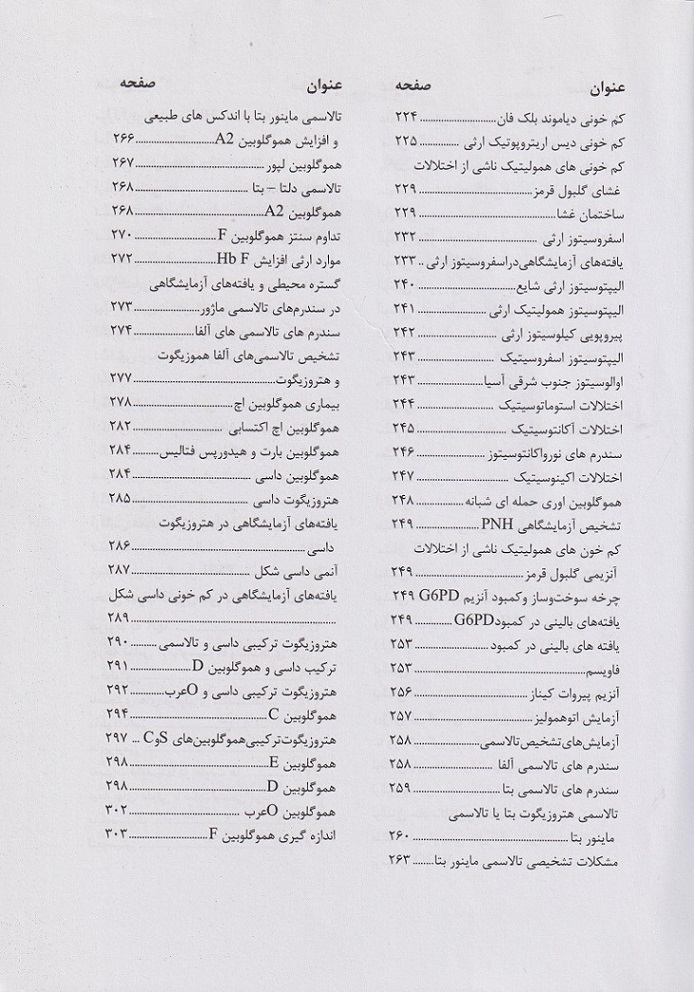 عنوان صفحه
کم خونی دیاموند بلک فان............................ ۲۲۴
کم خونی دیس اریتروپوتیک ارثی .............. ۲۲۵
کم خونی های همولیتیک ناشی از اختلالات
غشای گلبول قرمز............................ ۲۲۹
ساختمان غشا............................ ۲۲۹
اسفروسیتوز ارثی ............................ ۲۳۲
یافته‌های آزمایشگاهی در اسفروسیتوز ارثی .. ۲۳۳
الیپتوسیتوز ارثی شایع............................ ۲۴۰
الیپتوسیتوز همولیتیک ارثی ............................ ۲۴۱
پیروپویی کیلوسیتوز ارثی ............................ ۲۴۲
الیپتوسیتوز اسفروسیتیک ............................ ۲۴۳
اوالوسیتوز جنوب شرقی آسیا............................ ۲۴۳
اختلالات استوماتوسیتیک ............................ ۲۴۴
اختلالات آکانتوسیتیک ............................ ۲۴۵
سندرم های نورواکانتوسیتوز ............................ ۲۴۶
اختلالات اکینوسیتیک ............................ ۲۴۷
هموگلوبین اوری حمله ای شبانه ................ ۲۴۸
تشخیص آزمایشگاهی PNH ................ ۲۴۹
کم خون های همولیتیک ناشی از اختلالات
آنزیمی گلبول قرمز............................ ۲۴۹
چرخه سوخت‌وساز وکمبود آنزیم G6PD ۲۴۹
یافته‌های بالینی در کمبودG6PD ............ ۲۴۹
یافته های بالینی در کمبود ................ ۲۵۳
فاویسم............................ ۲۵۳
آنزیم پیروات کیناز ............................ ۲۵۶
آزمایش اتوهمولیز ............................ ۲۵۷
آزمایش‌های‌تشخیص‌تالاسمی................ ۲۵۸
سندرم های تالاسمی آلفا ................ ۲۵۸
سندرم های تالاسمی بتا ................ ۲۵۹
تالاسمی هتروزیگوت بتا یا تالاسمی
ماینور بتا ............................ ۲۶۰
مشکلات تشخیصی تالاسمی ماینور بتا....... ۲۶۳
عنوان صفحه
تالاسمی ماینور بتا با اندکس های طبیعی
و افزایش هموگلوبین A2............................ ۲۶۶
هموگلوبین لپور ............................ ۲۶۷
تالاسمی دلتا – بتا ............................ ۲۶۸
هموگلوبین A2............................ ۲۶۸
تداوم سنتز هموگلوبین F............................ ۲۷۰
موارد ارثی افزایش Hb F ................ ۲۷۲
گستره محیطی و یافته‌های آزمایشگاهی
در سندرم‌های تالاسمی ماژور................ ۲۷۳
سندرم های تالاسمی های آلفا................ ۲۷۴
تشخیص تالاسمی‌های آلفا هموزیگوت
و هتروزیگوت............................ ۲۷۷
بیماری هموگلوبین اچ............................ ۲۷۸
هموگلوبین اچ اکتسابی ................ ۲۸۲
هموگلوبین بارت و هیدورپس فتالیس ....... ۲۸۴
هموگلوبین داسی ............................ ۲۸۴
هتروزیگوت داسی ............................ ۲۸۵
یافته‌های آزمایشگاهی در هتروزیگوت
داسی ............................ ۲۸۶
آنمی داسی شکل ............................ ۲۸۷
یافته‌های آزمایشگاهی در کم خونی داسی شکل
............................ ۲۸۹
هتروزیگوت ترکیبی داسی و تالاسمی ......... ۲۹۰
ترکیب داسی و هموگلوبین D................ ۲۹۱
هتروزیگوت ترکیبی داسی و Oعرب........... ۲۹۲
هموگلوبین C............................ ۲۹۴
هتروزیگوت‌ترکیبی‌هموگلوبین‌های SوC .. ۲۹۷
هموگلوبین E............................ ۲۹۸
هموگلوبین D............................ ۲۹۸
هموگلوبین Oعرب ............................ ۳۰۲
اندازه گیری هموگلوبین F ................ ۳۰۳